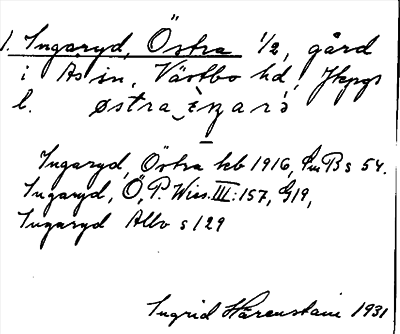 1. Ingaryd, Östra 1/2, gård
i Ås sn, Västbo hd, Jkpgs
l.
Ingaryd, Östra kb 1916, SmB s 54.
Ingaryd, Ö, P. Wies. III: 157, G19,
Ingaryd Allv s 129
Ingrid Härenstam 1931